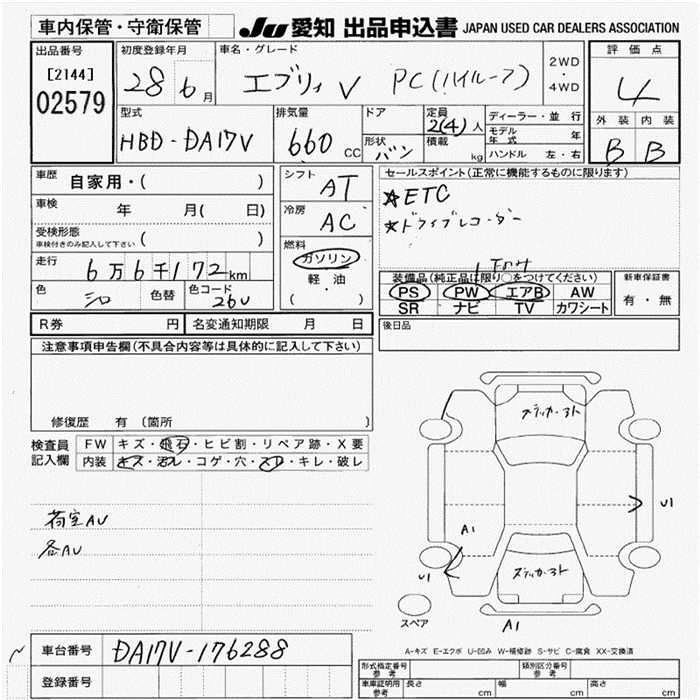 車内保管・守衛保管
JU 愛知 出品申込書 JAPAN USED CAR DEALERS ASSOCIATION
出品番号 初度登録年月 車名・グレード 2WD・4WD 評価点
[2144]
02579 28 6月 エブリィ V PC(ハイルーフ) 4
型式 排気量 ドア 定員 2(4)人 ディーラー・並行 外装 内装
HBD-DA17V 660 CC 形状 バン 積載 kg モデル年式 年 B B
ハンドル 左・右
車歴 自家用・( ) シフト AT セールスポイント(正常に機能するものに限ります)
車検 年 月( 日) 冷房 AC ★ETC
★ドライブレコーダー
受検形態 車検付きのみ記入して下さい ( ) 燃料
ガソリン
走行 6万6千172km 軽油 装備品(純正品に限り○をつけてください) 新車保証書
色 シロ 色替 色コード 26U ( ) PS PW エアB AW 有・無
SR ナビ TV カワシート
R券 円 名変通知期限 月 日 後日品
注意事項申告欄(不具合内容等は具体的に記入して下さい)
修復歴 有 〔箇所 〕
検査員記入欄 FW キズ・飛石・ヒビ割・リペア跡・X要
内装 キズ・汚レ・コゲ・穴・スレ・キレ・破レ
荷室AU
各AU
ステッカーアト
U1
A1
ステッカーアト
U1
スペア A1
A-キズ E-エクボ U-凹み W-補修跡 S-サビ C-腐食 XX-交換済
車台番号 DA17V-176288
登録番号
形式指定番号 参考 類別区分番号 参考
車庫証明用 参考 長さ cm 幅 cm 高さ cm